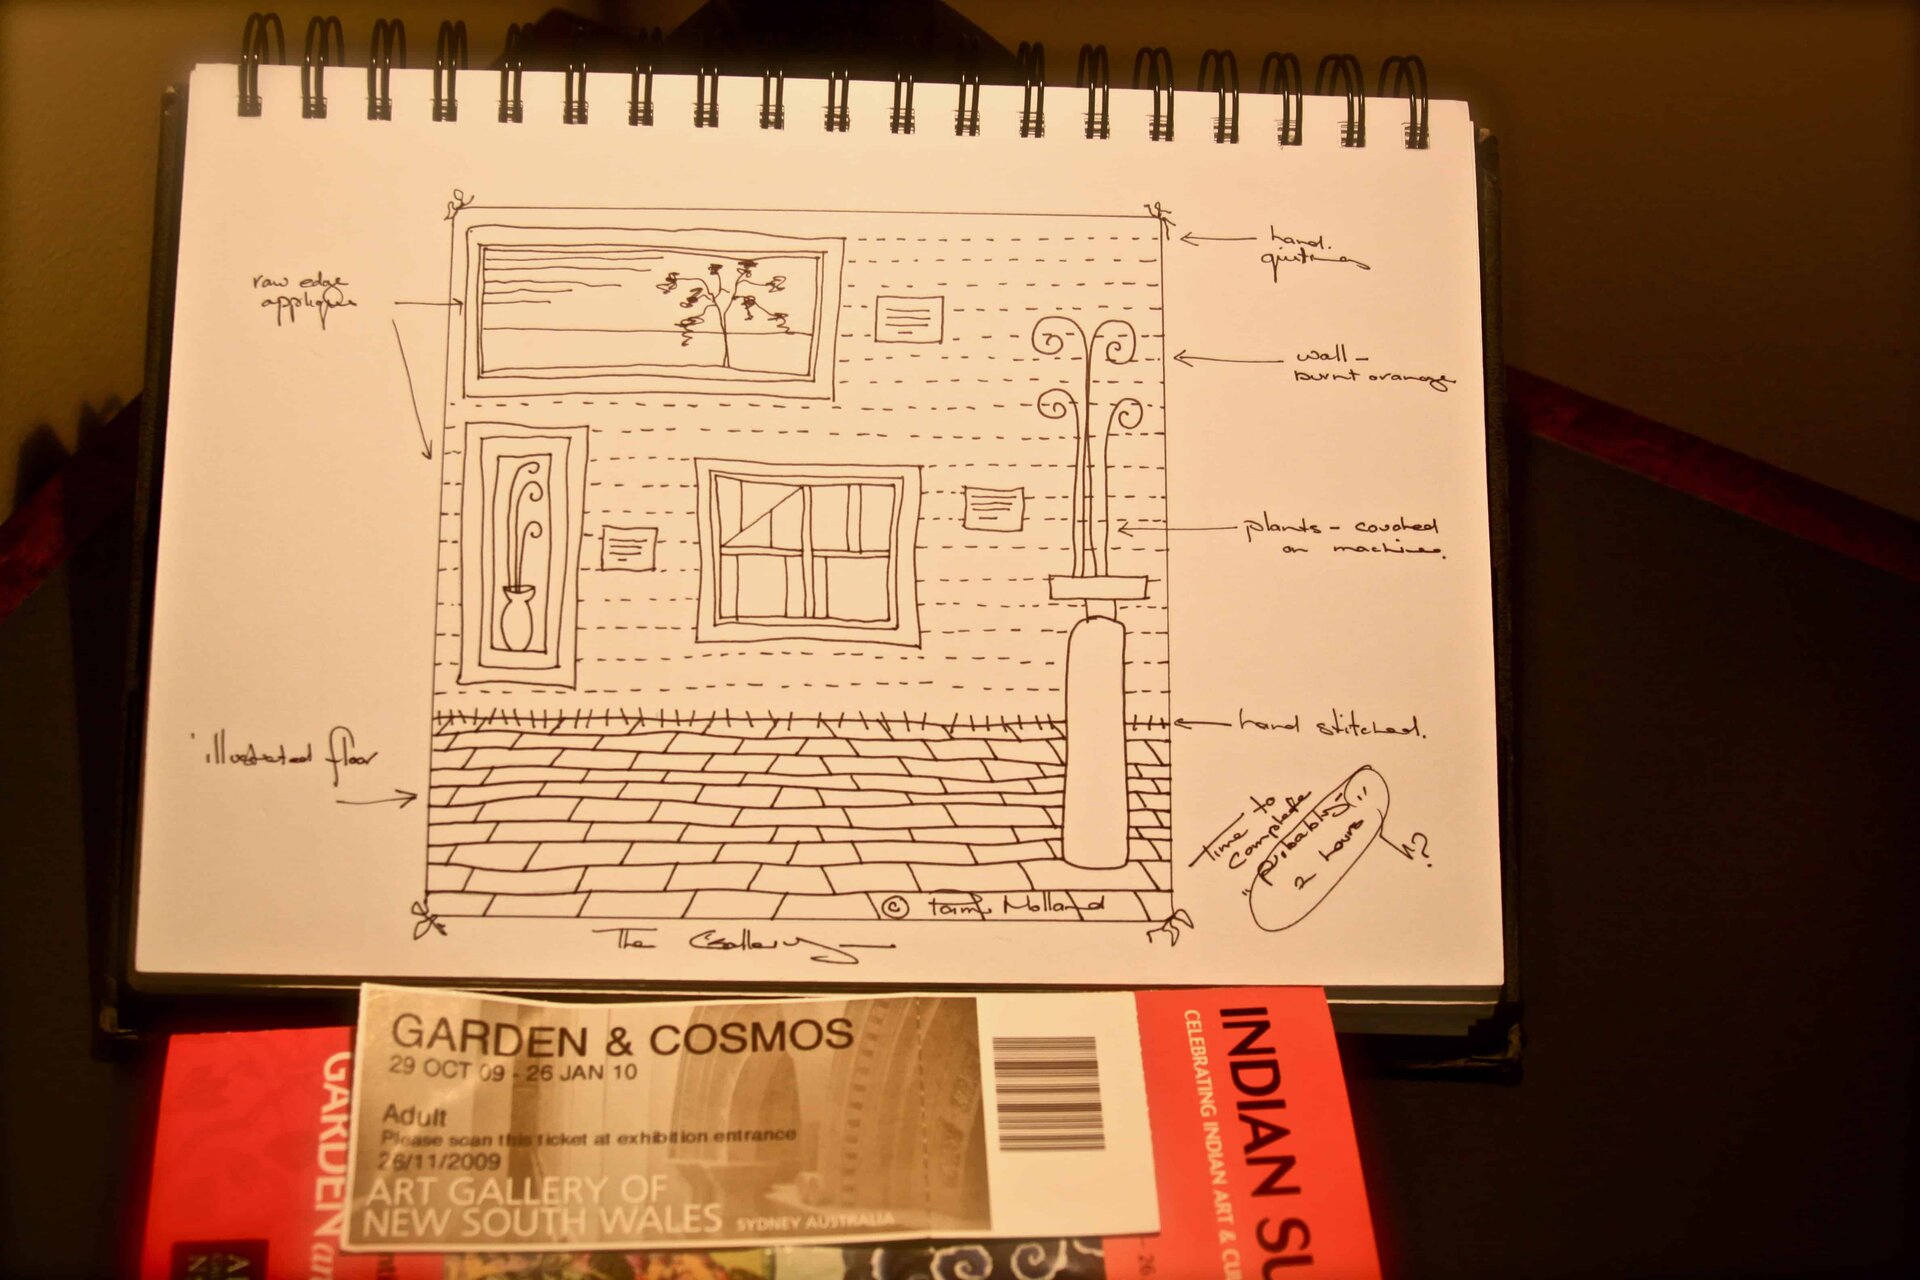 hand.
quilting
raw edge
applique
wall -
burnt orange
plants - couched
on machine.
hand stitched.
illustrated floor
Time to
complete
"probably"
2 hours
h?
©
Molland
The Gallery
GARDEN & COSMOS
29 OCT 09 - 26 JAN 10
Adult
Please scan this ticket at exhibition entrance
26/11/2009
ART GALLERY OF
NEW SOUTH WALES SYDNEY AUSTRALIA
GARDEN
an
INDIAN SU
CELEBRATING INDIAN ART & CU
- 26